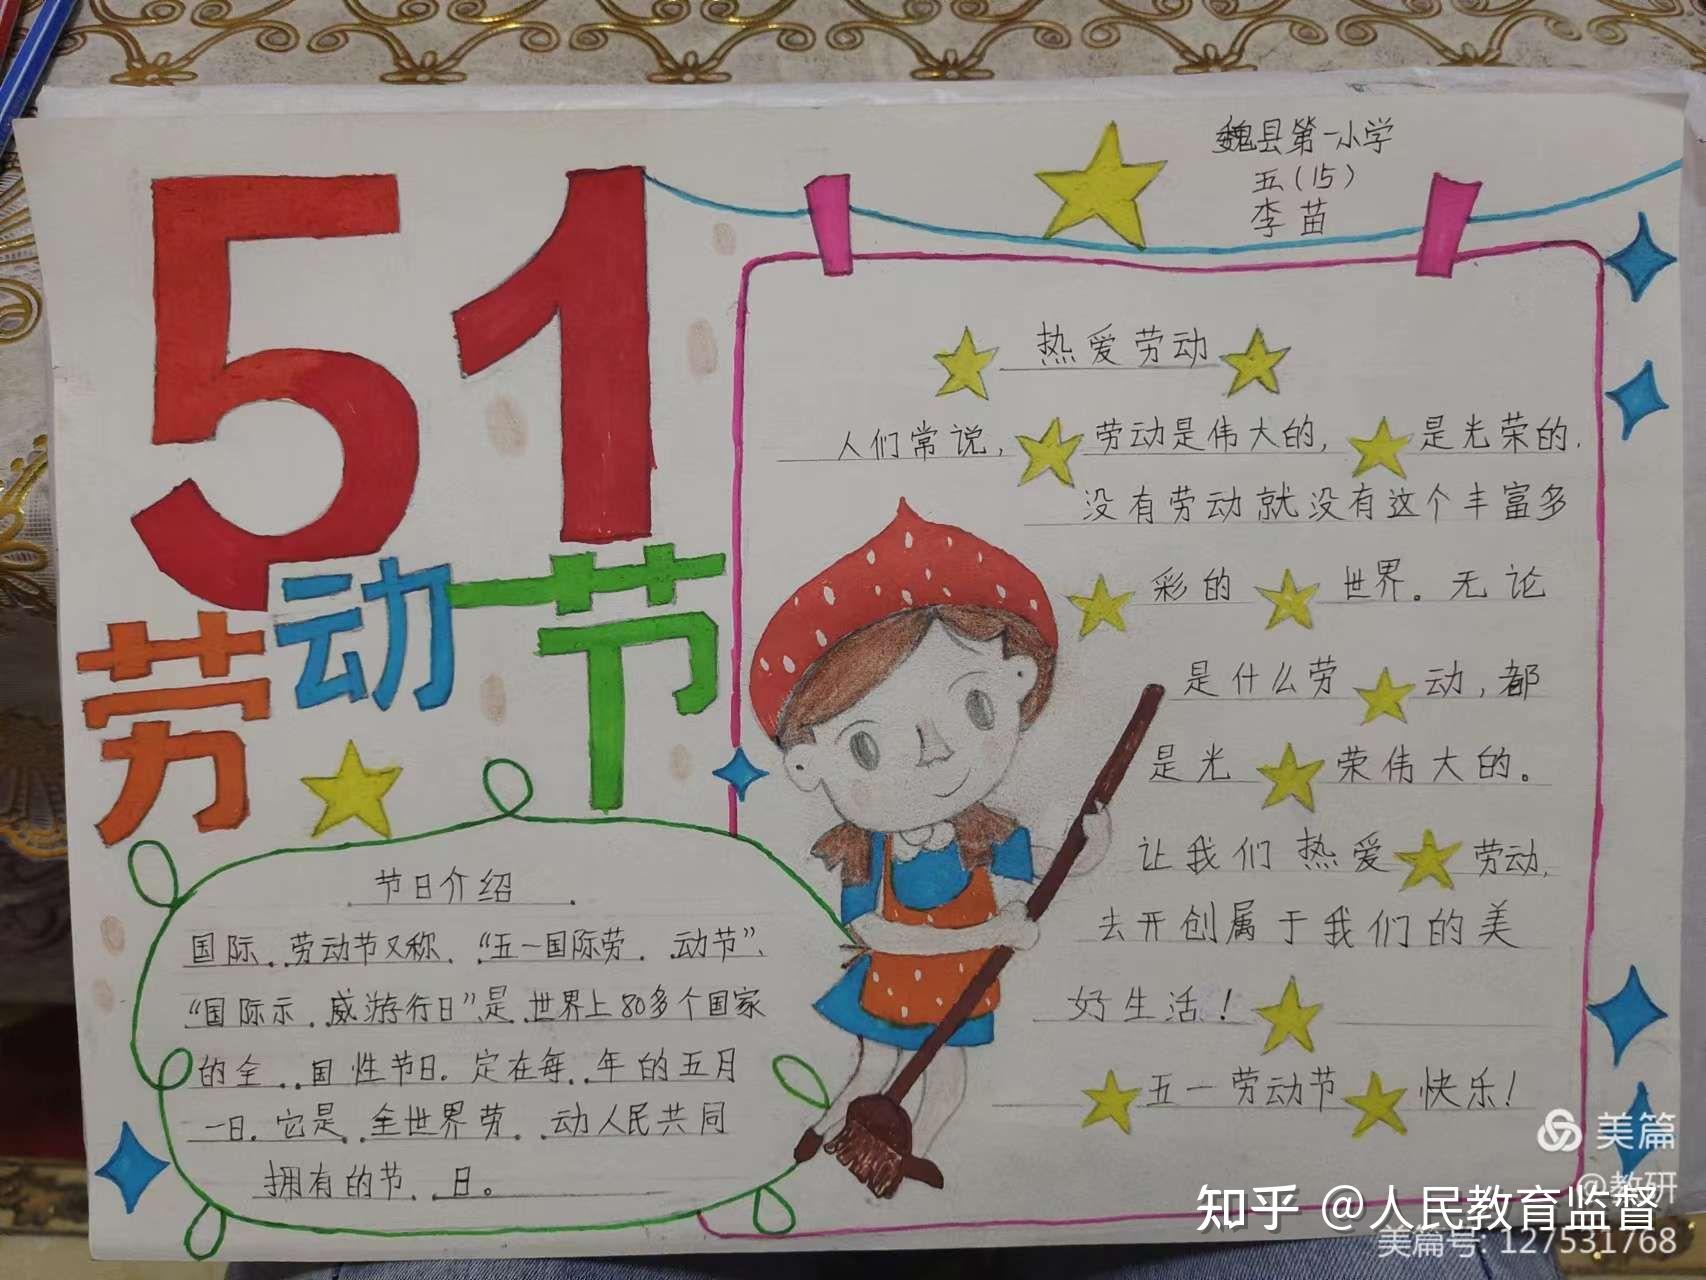 魏县第一小学
五(15)
李苗
51
劳动节
热爱劳动
人们常说,劳动是伟大的,是光荣的.
没有劳动就没有这个丰富多
彩的世界。无论
是什么劳动,都
是光荣伟大的。
让我们热爱劳动,
去开创属于我们的美
好生活!
五一劳动节快乐!
节日介绍.
国际..劳动节又称."五一国际劳.动节"、
"国际示.威游行日".是.世界上80多个国家
的全..国性节日.定在每..年的五月
一日.它是.全世界劳.动人民共同
拥有的节.日。
美篇
@教研
知乎 @人民教育监督
美篇号:127531768